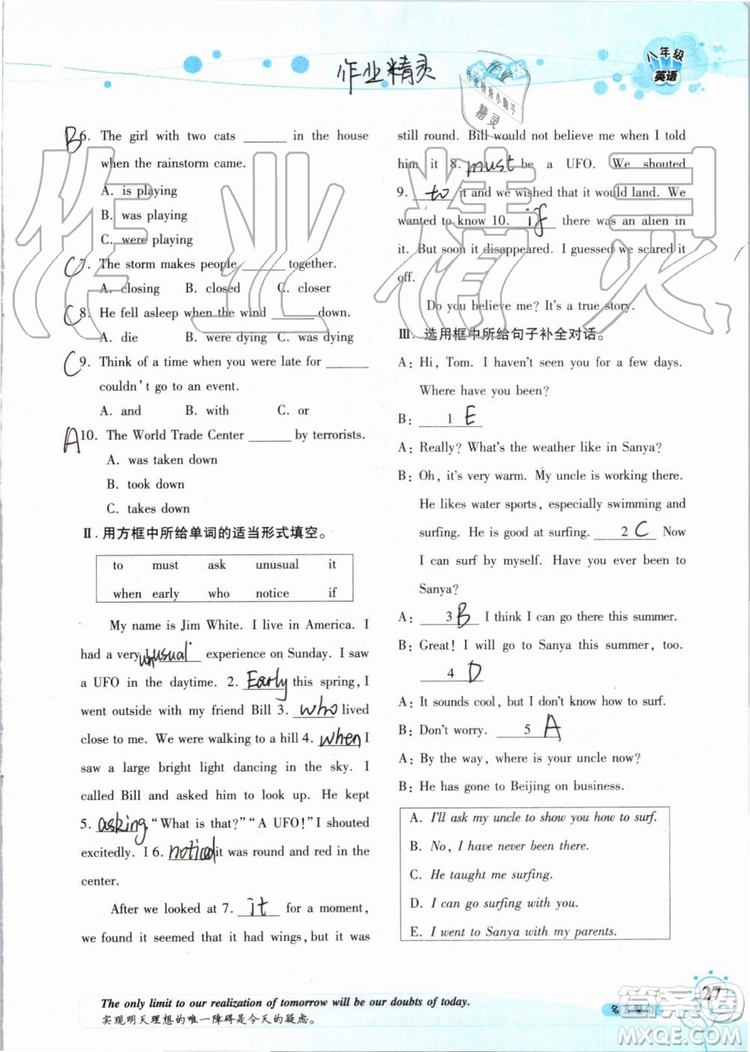 八年级
英语
作业精灵
精灵
作业精灵
B6. The girl with two cats ______ in the house
when the rainstorm came.
A. is playing
B. was playing
C. were playing
C7. The storm makes people ______ together.
A. closing B. closed C. closer
C8. He fell asleep when the wind ______ down.
A. die B. were dying C. was dying
C9. Think of a time when you were late for ______
couldn't go to an event.
A. and B. with C. or
A10. The World Trade Center ______ by terrorists.
A. was taken down
B. took down
C. takes down
Ⅱ. 用方框中所给单词的适当形式填空。
to must ask unusual it
when early who notice if
My name is Jim White. I live in America. I
had a very unusual experience on Sunday. I saw
a UFO in the daytime. 2. Early this spring, I
went outside with my friend Bill 3. who lived
close to me. We were walking to a hill 4. when I
saw a large bright light dancing in the sky. I
called Bill and asked him to look up. He kept
5. asking "What is that?" "A UFO!" I shouted
excitedly. I 6. noticed it was round and red in the
center.
After we looked at 7. it for a moment,
we found it seemed that it had wings, but it was
still round. Bill would not believe me when I told
him it 8. must be a UFO. We shouted
9. to it and we wished that it would land. We
wanted to know 10. if there was an alien in
it. But soon it disappeared. I guessed we scared it
off.
Do you believe me? It's a true story.
Ⅲ. 选用框中所给句子补全对话。
A: Hi, Tom. I haven't seen you for a few days.
Where have you been?
B: 1 E
A: Really? What's the weather like in Sanya?
B: Oh, it's very warm. My uncle is working there.
He likes water sports, especially swimming and
surfing. He is good at surfing. 2 C Now
I can surf by myself. Have you ever been to
Sanya?
A: 3 B I think I can go there this summer.
B: Great! I will go to Sanya this summer, too.
4 D
A: It sounds cool, but I don't know how to surf.
B: Don't worry. 5 A
A: By the way, where is your uncle now?
B: He has gone to Beijing on business.
A. I'll ask my uncle to show you how to surf.
B. No, I have never been there.
C. He taught me surfing.
D. I can go surfing with you.
E. I went to Sanya with my parents.
The only limit to our realization of tomorrow will be our doubts of today.
实现明天理想的唯一障碍是今天的疑虑。
27
答案圈
MXQE.COM